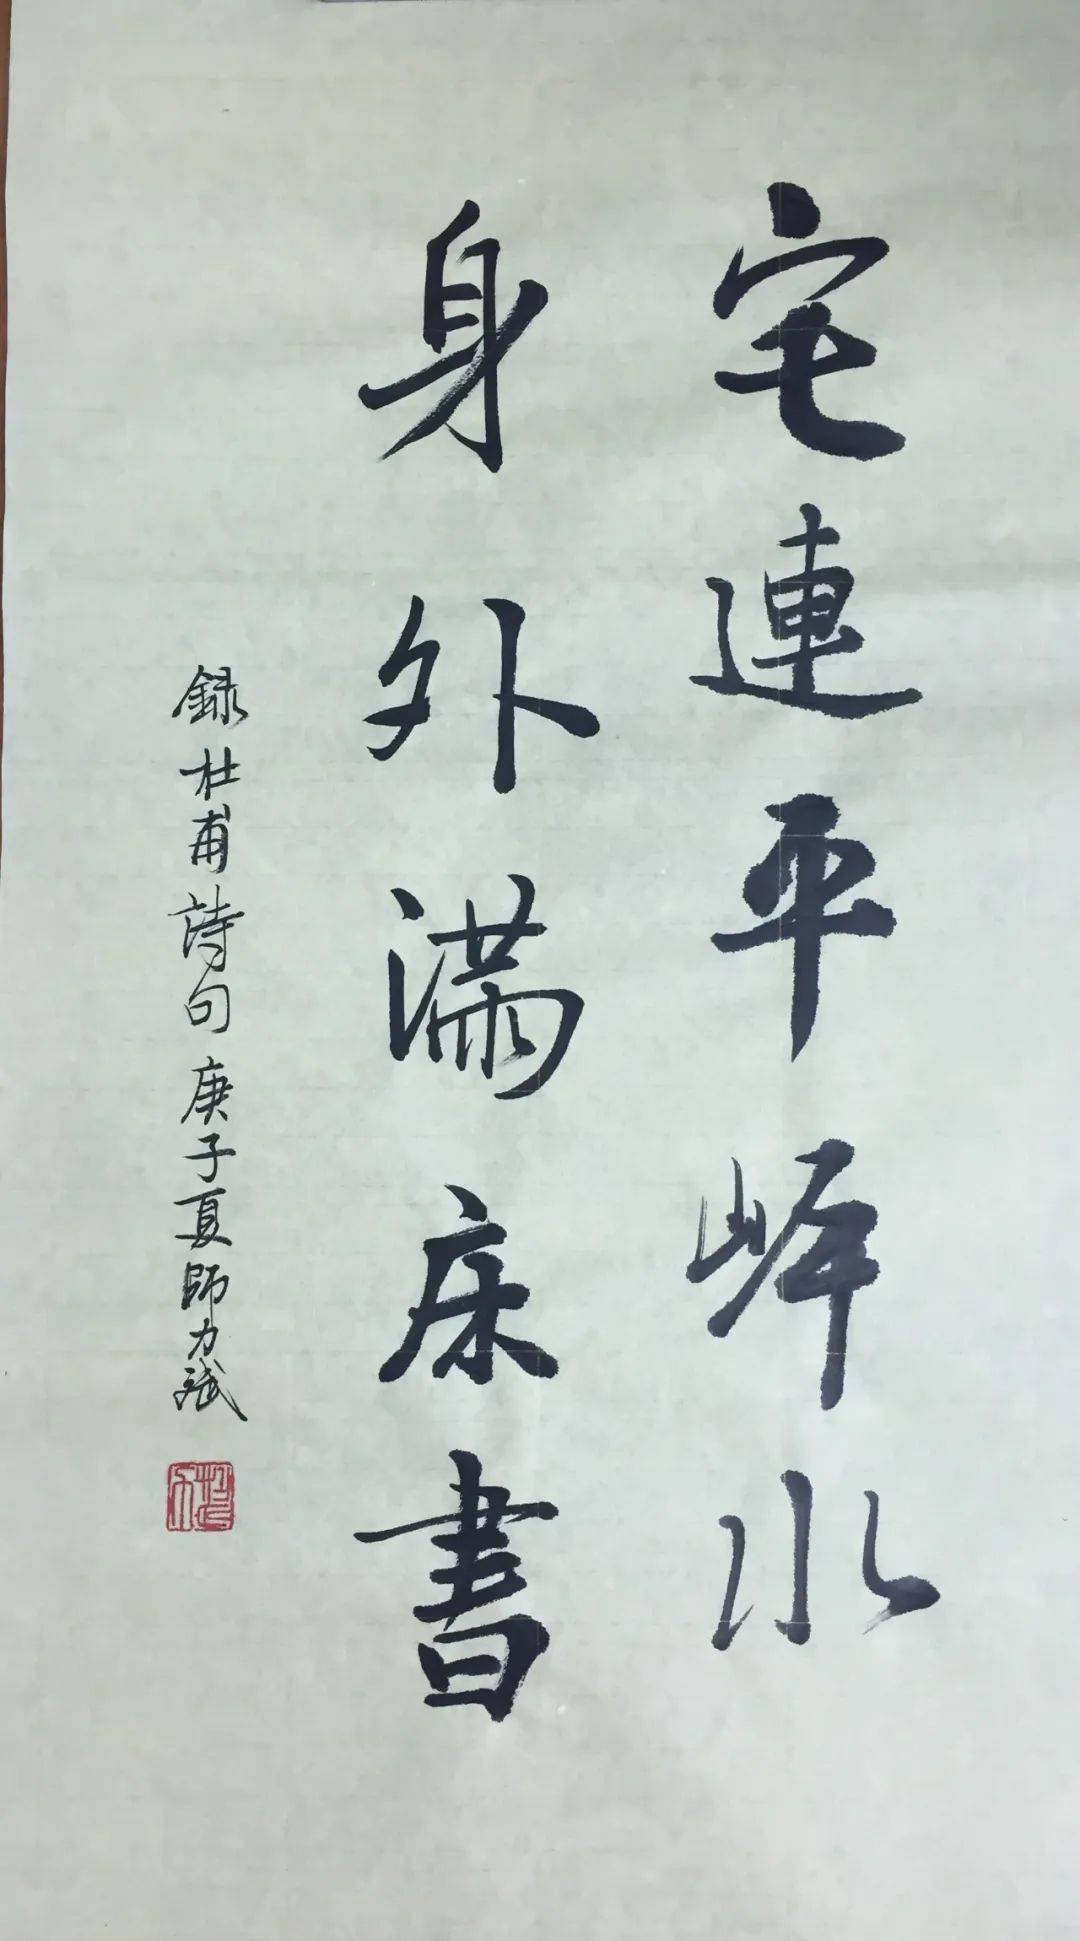 宅連平岸水
身外滿床書
録杜甫詩句庚子夏師力斌